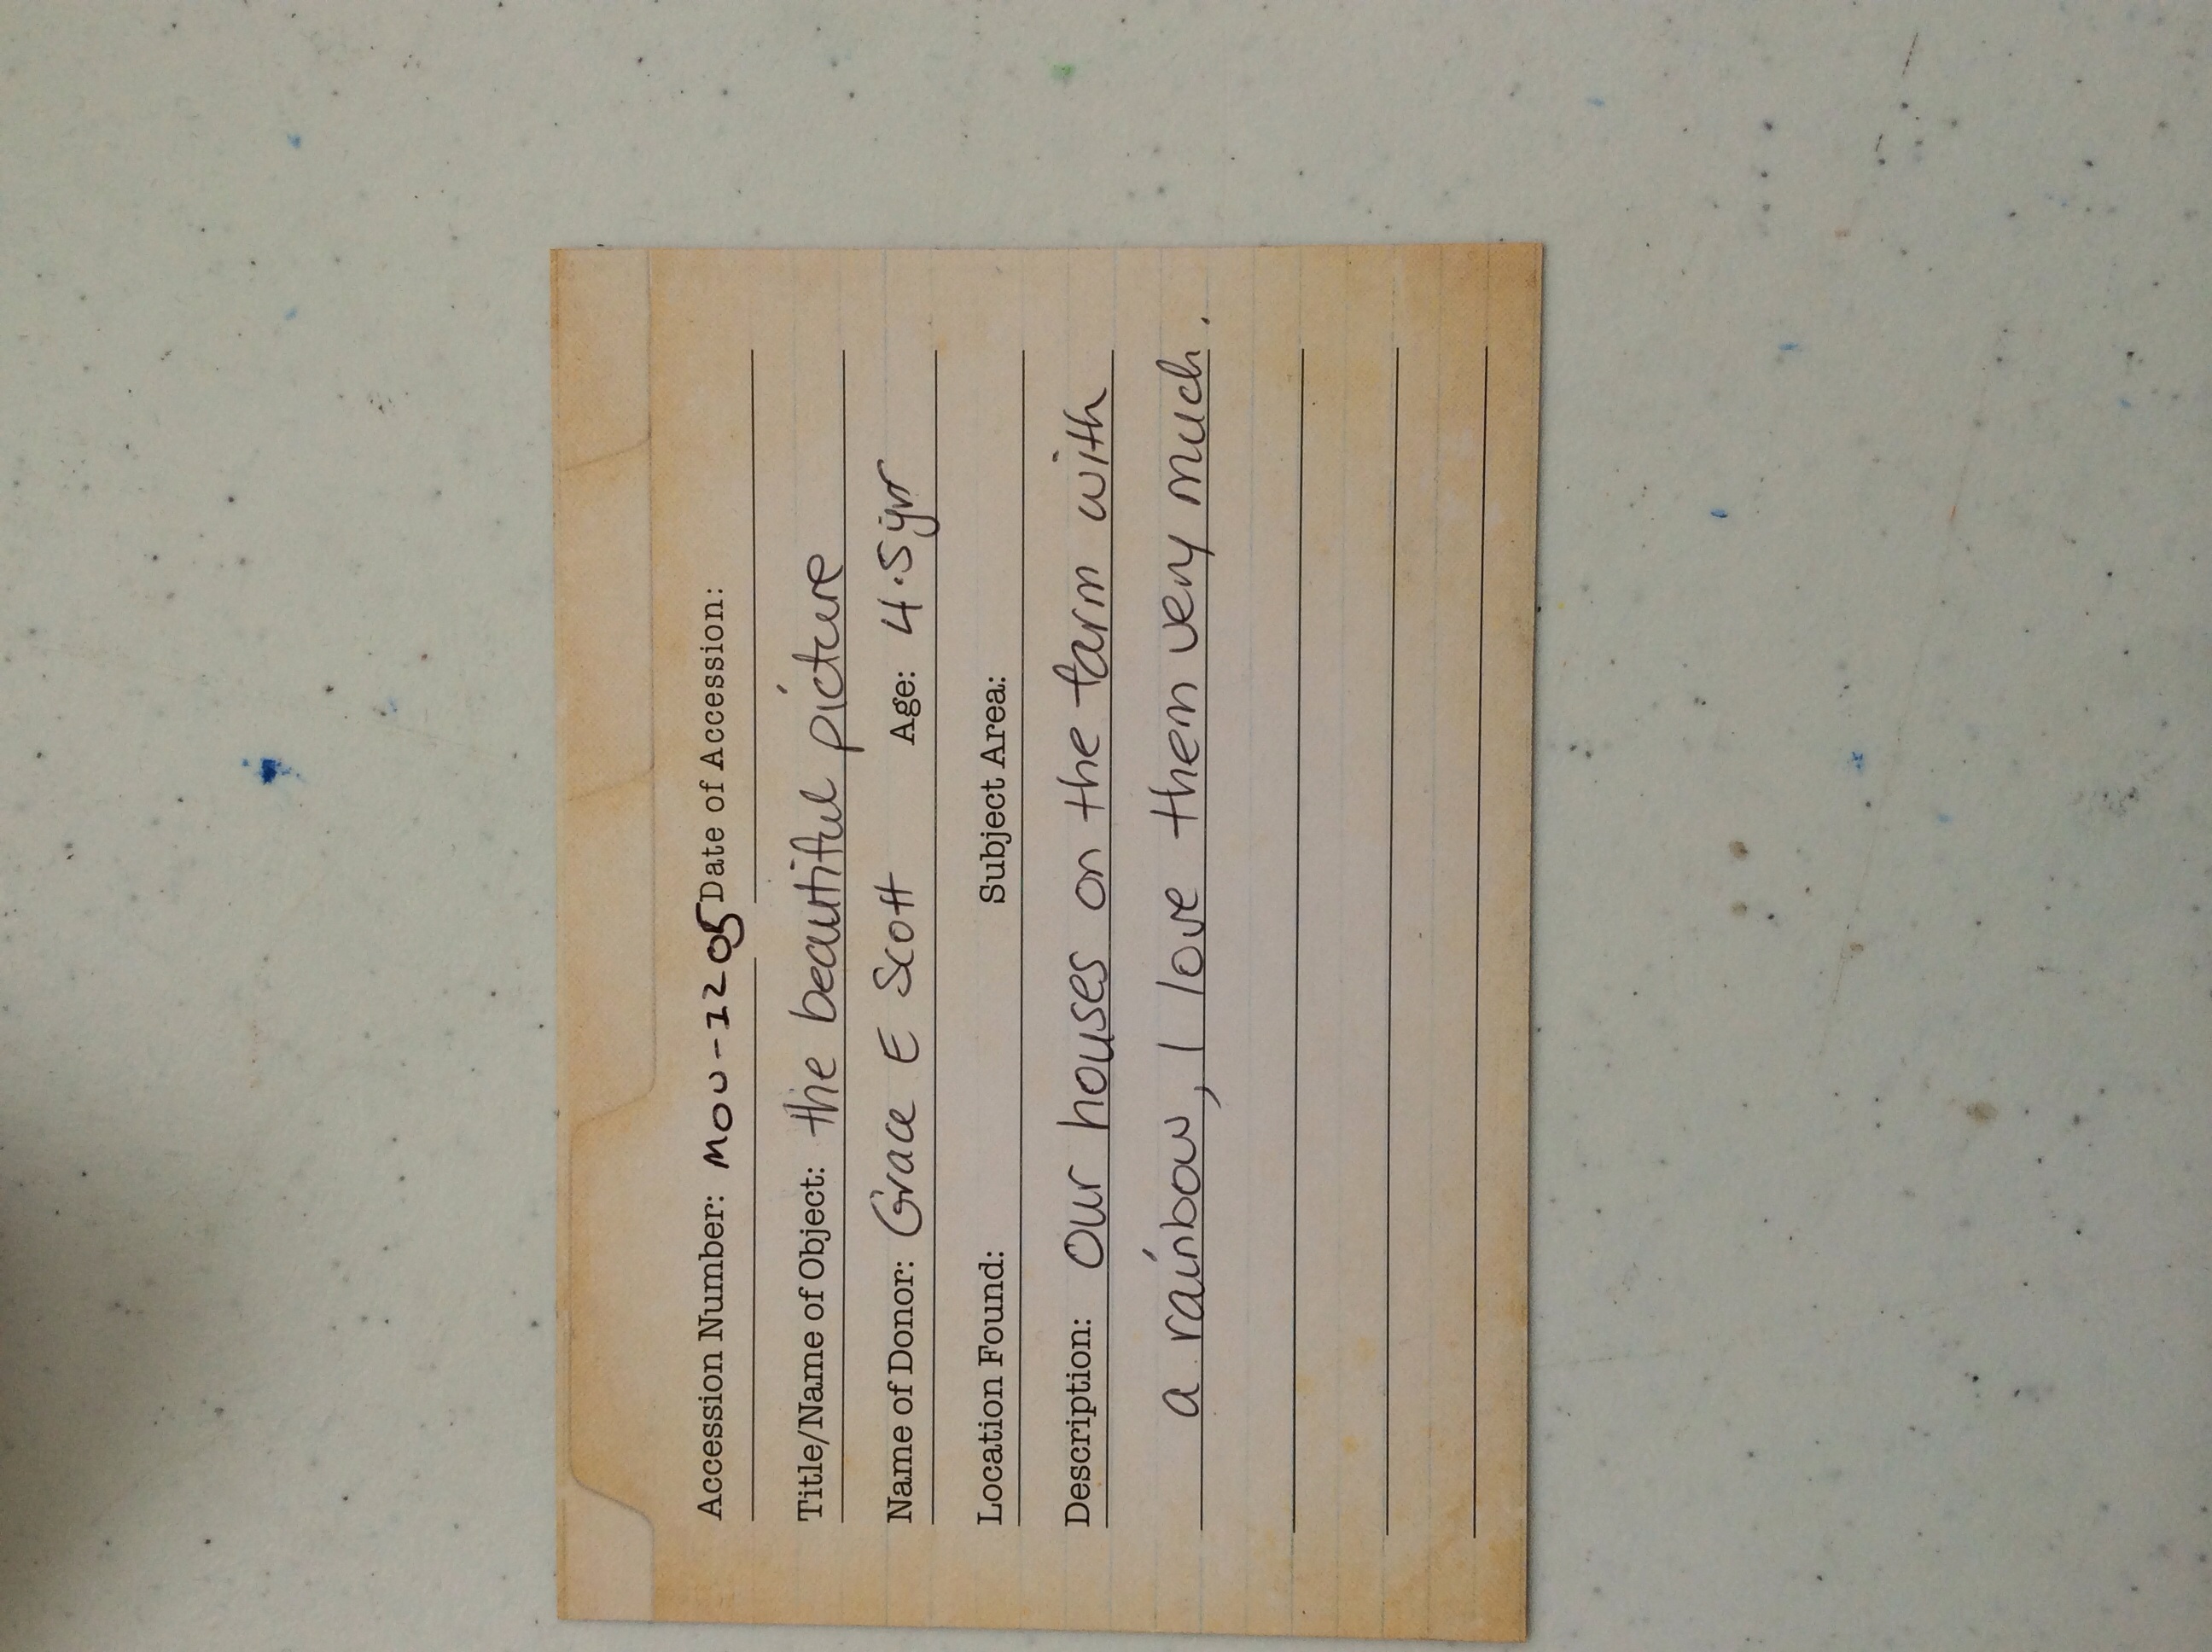 Accession Number: MOU-1205 Date of Accession:
Title/Name of Object: the beautiful picture
Name of Donor: Grace E Scott Age: 4.5yr
Location Found: Subject Area:
Description: Our houses on the farm with
a rainbow, I love them very much.